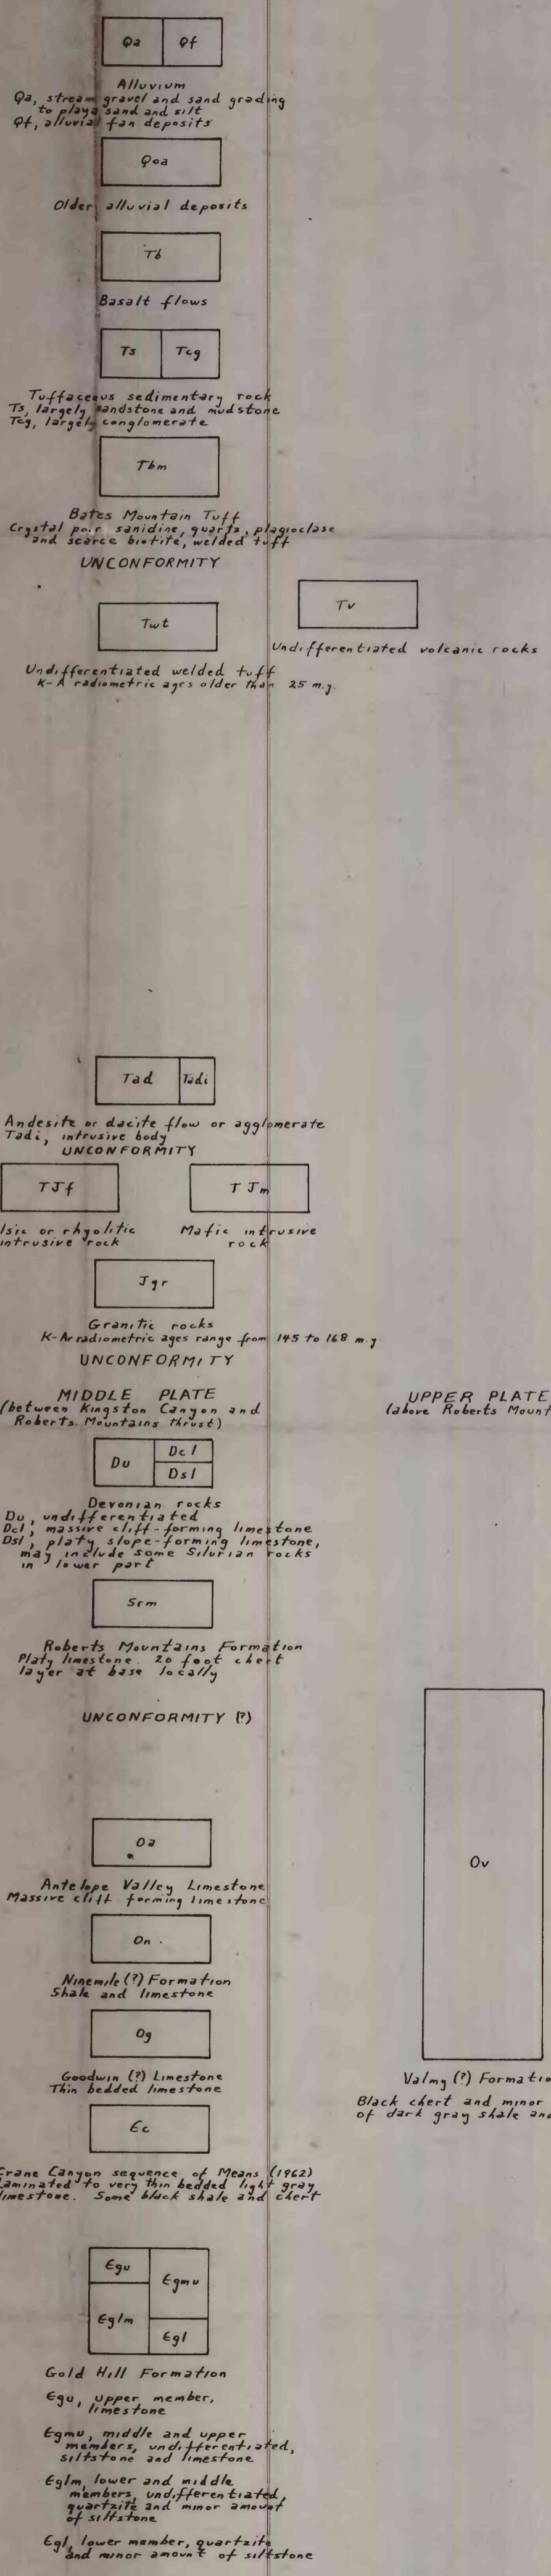 Qa Qf
Alluvium
Qa, stream gravel and sand grading
to playa sand and silt
Qf, alluvial fan deposits
Qoa
Older alluvial deposits
Tb
Basalt flows
Ts Tcg
Tuffaceous sedimentary rock
Ts, largely sandstone and mudstone
Tcg, largely conglomerate
Tbm
Bates Mountain Tuff
Crystal poor sanidine, quartz, plagioclase
and scarce biotite, welded tuff
UNCONFORMITY
Twt
Undifferentiated welded tuff
K-A radiometric ages older than 25 m.y.
Tv
Undifferentiated volcanic rocks
Tad Tadi
Andesite or dacite flow or agglomerate
Tadi, intrusive body
UNCONFORMITY
TJf
lsic or rhyolitic
intrusive rock
TJm
Mafic intrusive
rock
Jgr
Granitic rocks
K-Ar radiometric ages range from 145 to 168 m.y
UNCONFORMITY
MIDDLE PLATE
(between Kingston Canyon and
Roberts Mountains thrust)
Du Dcl
Dsl
Devonian rocks
Du, undifferentiated
Dcl, massive cliff-forming limestone
Dsl, platy slope-forming limestone,
may include some Silurian rocks
in lower part
Srm
Roberts Mountains Formation
Platy limestone. 20 foot chert
layer at base locally
UNCONFORMITY (?)
Oa
Antelope Valley Limestone
Massive cliff forming limestone
On
Ninemile (?) Formation
Shale and limestone
Og
Goodwin (?) Limestone
Thin bedded limestone
Єc
Crane Canyon sequence of Means (1962)
Laminated to very thin bedded light gray
limestone. Some black shale and chert
Єgu Єgmu
Єglm Єgl
Gold Hill Formation
Єgu, upper member,
limestone
Єgmu, middle and upper
members, undifferentiated,
siltstone and limestone
Єglm, lower and middle
members, undifferentiated,
quartzite and minor amount
of siltstone
Єgl, lower member, quartzite
and minor amount of siltstone
UPPER PLATE
(above Roberts Mount
Ov
Valmy (?) Formatio
Black chert and minor
of dark gray shale and